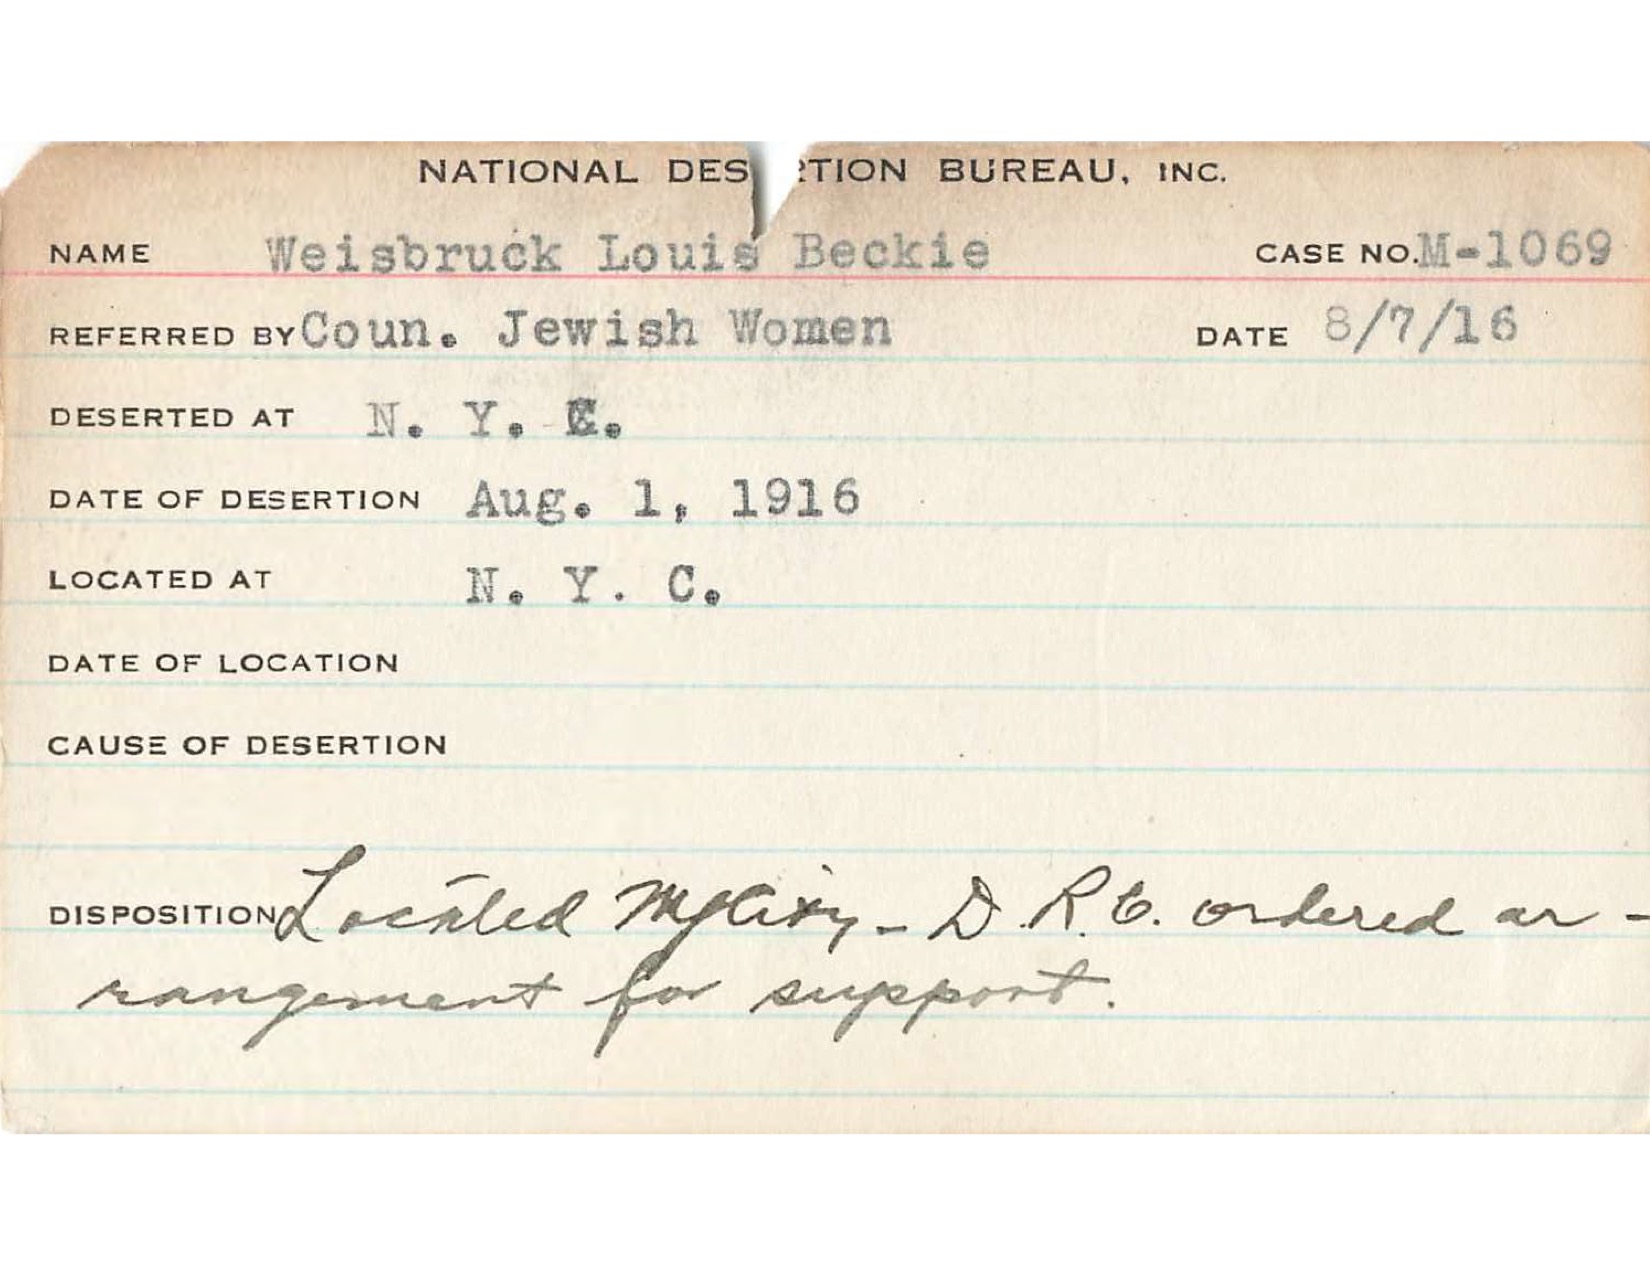 NATIONAL DES TION BUREAU, INC.
NAME Weisbruck Louis Beckie CASE NO. M-1069
REFERRED BY Coun. Jewish Women DATE 8/7/16
DESERTED AT N. Y. C.
DATE OF DESERTION Aug. 1, 1916
LOCATED AT N. Y. C.
DATE OF LOCATION
CAUSE OF DESERTION
DISPOSITION Located NYCity - D.R.C. ordered ar-
rangement for support.